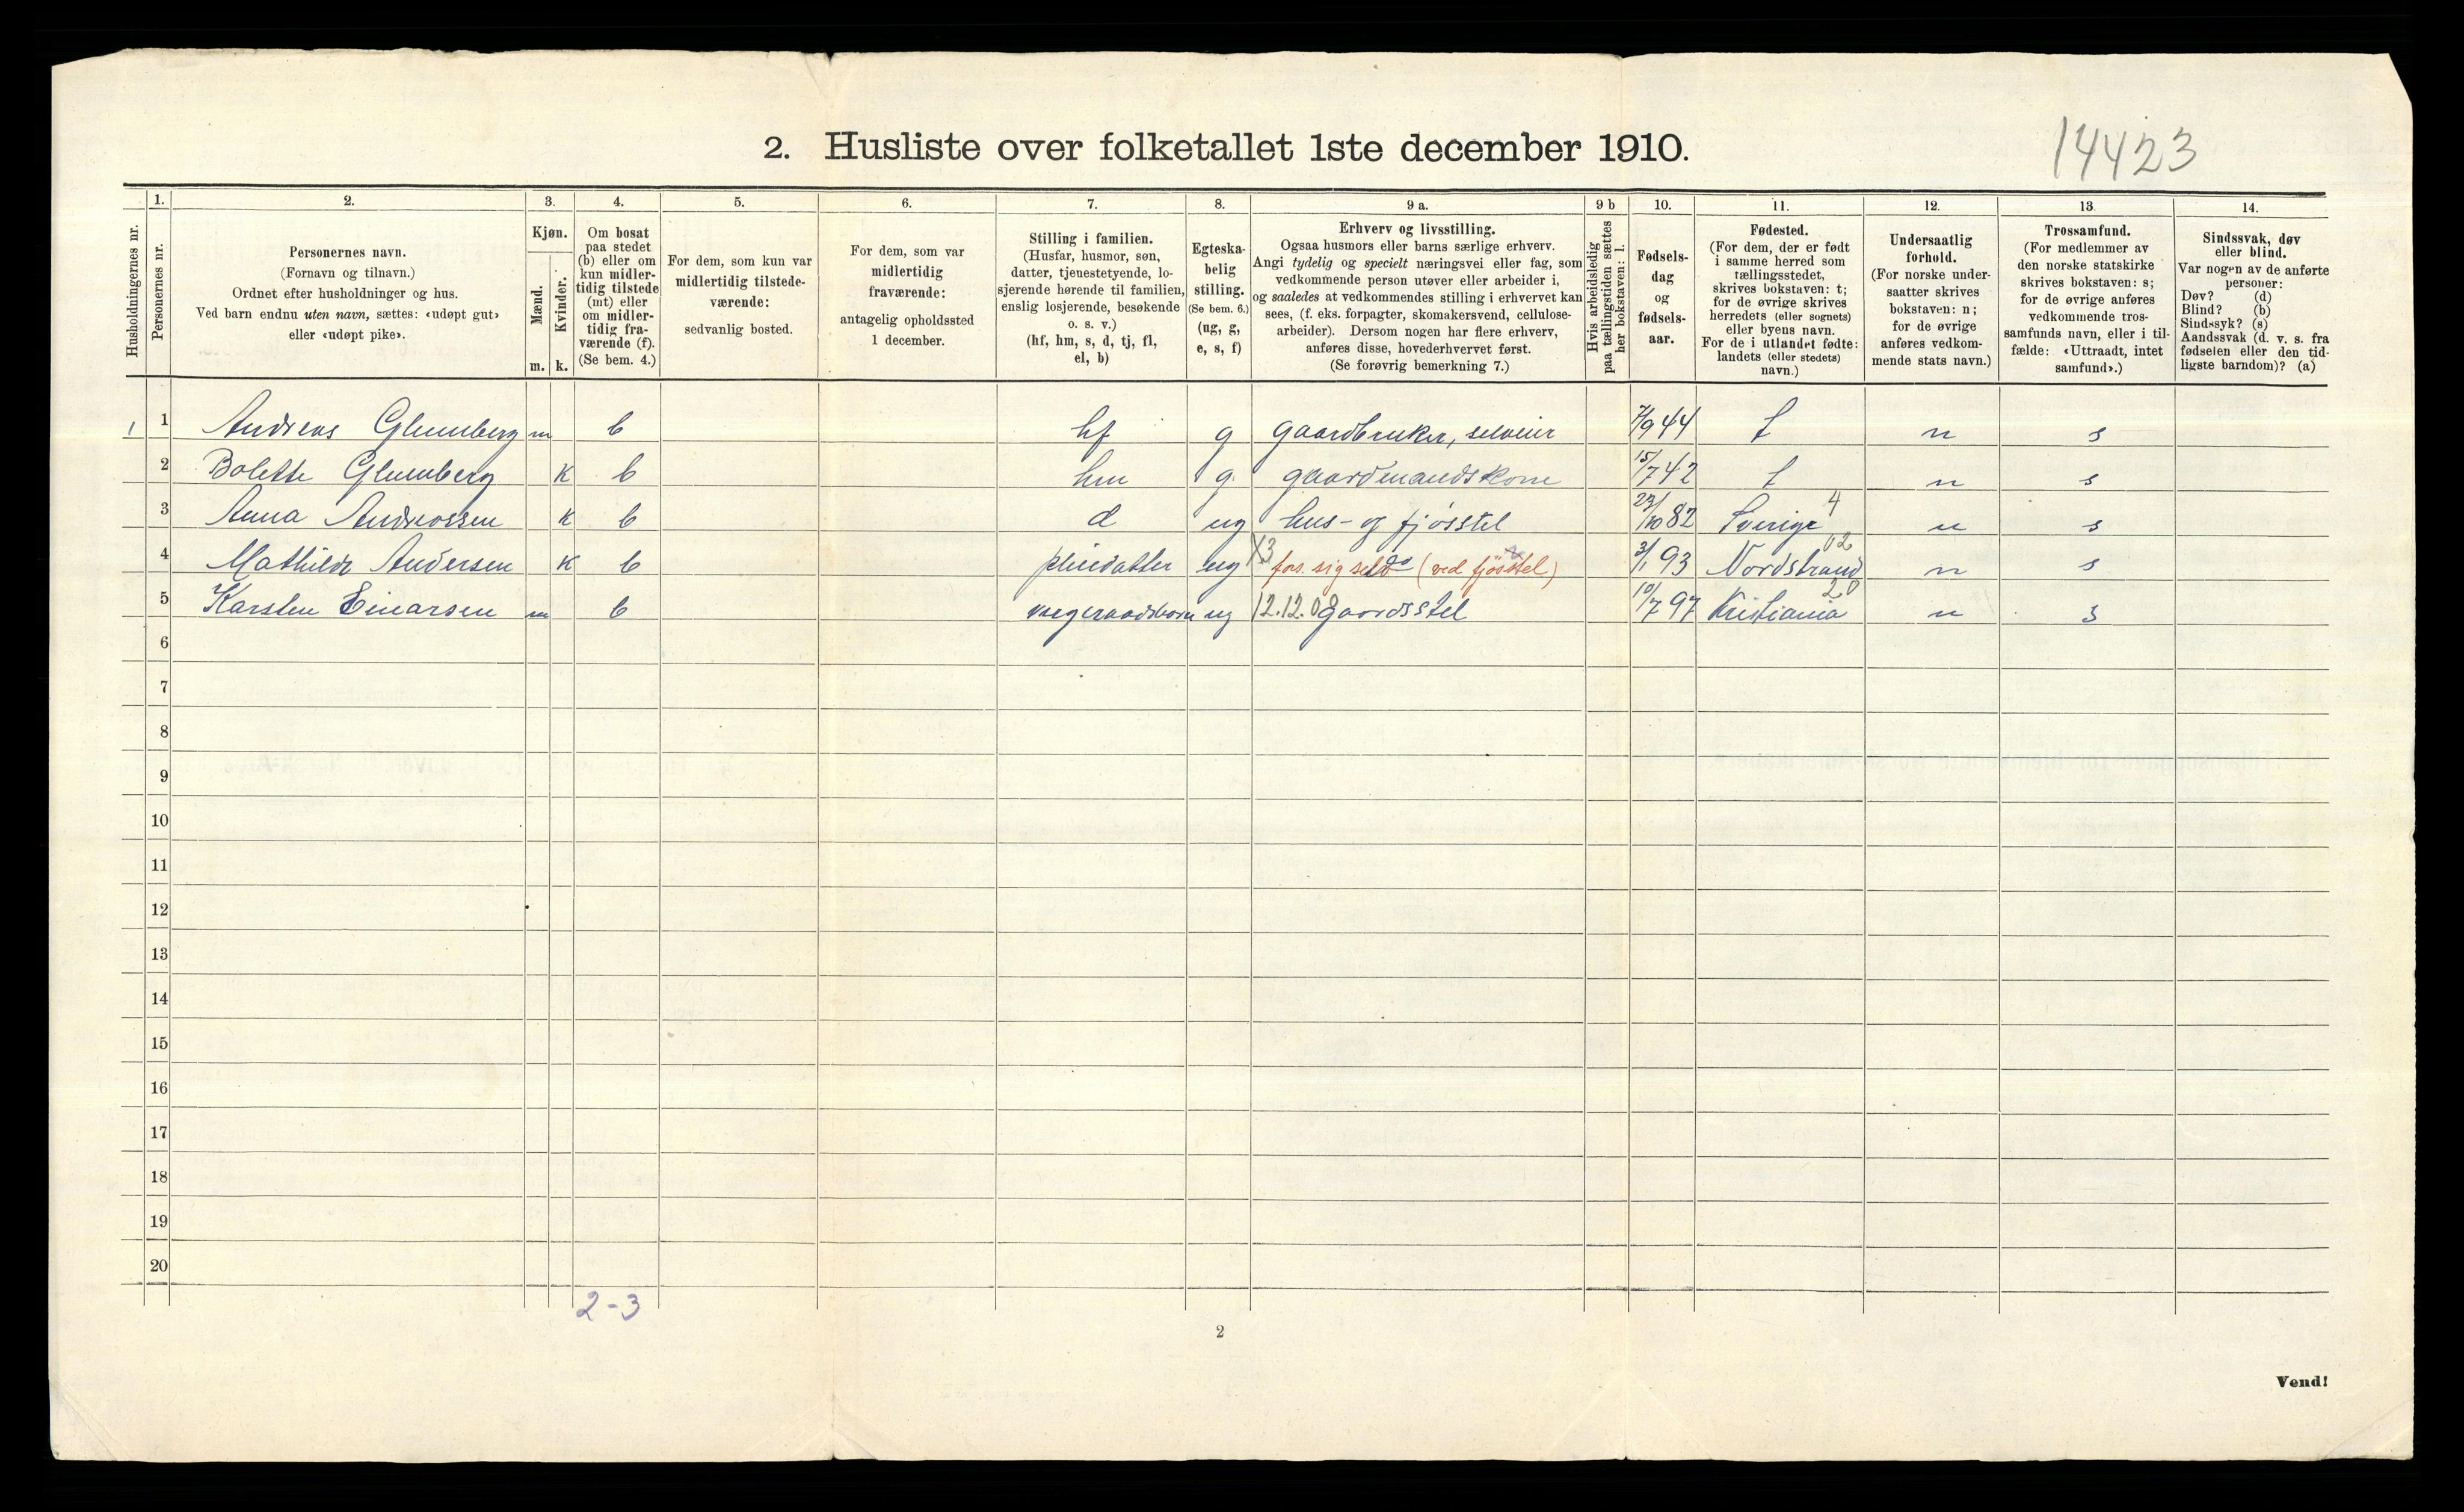 2. Husliste over folketallet 1ste december 1910.
14423
Husholdningernes nr.
1.
Personernes nr.
2.
Personernes navn.
(Fornavn og tilnavn.)
Ordnet efter husholdninger og hus.
Ved barn endnu uten navn, sættes: «udøpt gut»
eller «udøpt pike».
3.
Kjøn.
Mænd.
Kvinder.
m. k.
4.
Om bosat
paa stedet
(b) eller om
kun midler-
tidig tilstede
(mt) eller
om midler-
tidig fra-
værende (f).
(Se bem. 4.)
5.
For dem, som kun var
midlertidig tilstede-
værende:
sedvanlig bosted.
6.
For dem, som var
midlertidig
fraværende:
antagelig opholdssted
1 december.
7.
Stilling i familien.
(Husfar, husmor, søn,
datter, tjenestetyende, lo-
sjerende hørende til familien,
enslig losjerende, besøkende
o. s. v.)
(hf, hm, s, d, tj, fl,
el, b)
8.
Egteska-
belig
stilling.
(Se bem. 6.)
(ug, g,
e, s, f)
9 a.
Erhverv og livsstilling.
Ogsaa husmors eller barns særlige erhverv.
Angi tydelig og specielt næringsvei eller fag, som
vedkommende person utøver eller arbeider i,
og saaledes at vedkommendes stilling i erhvervet kan
sees, (f. eks. forpagter, skomakersvend, cellulose-
arbeider). Dersom nogen har flere erhverv,
anføres disse, hovederhvervet først.
(Se forøvrig bemerkning 7.)
9 b
Hvis arbeidsledig
paa tællingstiden sættes
her bokstaven: l.
10.
Fødsels-
dag
og
fødsels-
aar.
11.
Fødested.
(For dem, der er født
i samme herred som
tællingsstedet,
skrives bokstaven: t;
for de øvrige skrives
herredets (eller sognets)
eller byens navn.
For de i utlandet fødte:
landets (eller stedets)
navn.)
12.
Undersaatlig
forhold.
(For norske under-
saatter skrives
bokstaven: n;
for de øvrige
anføres vedkom-
mende stats navn.)
13.
Trossamfund.
(For medlemmer av
den norske statskirke
skrives bokstaven: s;
for de øvrige anføres
vedkommende tros-
samfunds navn, eller i til-
fælde: «Uttraadt, intet
samfund».)
14.
Sindssvak, døv
eller blind.
Var nogen av de anførte
personer:
Døv? (d)
Blind? (b)
Sindssyk? (s)
Aandssvak (d. v. s. fra
fødselen eller den tid-
ligste barndom)? (a)
1 1 Andreas Glemberg m b hf g gaardbruker, selveier 7/9 44 t n s
2 Bolette Glemberg k b hm g gaardmandskone 15/7 42 t n s
3 Anna Andreassen k b d ug hus- og fjøsstel 23/10 82 Sverige 4 n s
4 Mathilde Andersen k b pleiedatter ug X3 fors. sig selv do (ved fjøsstel) 3/1 93 Nordstrand 02 n s
5 Karsten Einarsen m b vergeraadsbarn ug 12.12.08 gaardsstel 10/7 97 Kristiania 20 n s
6
7
8
9
10
11
12
13
14
15
16
17
18
19
20
2-3
2
Vend!